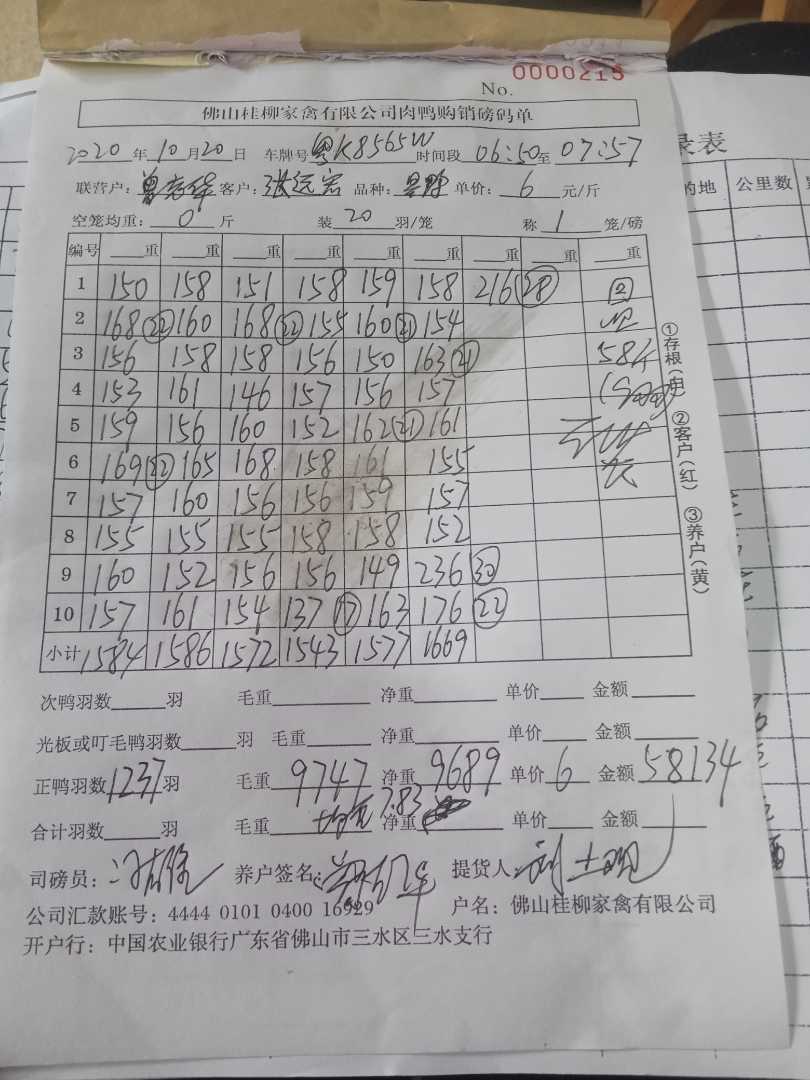 No. 0000215
佛山桂柳家禽有限公司肉鸭购销磅码单
2020年10月20日 车牌号粤K8565W时间段06:50至07:57
联营户: 客户:张远宏 品种: 单价:6元/斤
空笼均重:0斤 装20羽/笼 称1笼/磅
编号 重 重 重 重 重 重 重 重 重
1 150 158 151 158 159 158 216 28 2
2 168 22 160 168 22 155 160 21 154
3 156 158 158 156 150 163 21 584
4 153 161 146 157 156 157
5 159 156 160 152 162 21 161
6 169 22 165 168 158 161 155
7 157 160 156 156 159 157
8 155 155 155 158 158 152
9 160 152 156 156 149 236 30
10 157 161 154 137 17 163 176 22
小计 1584 1586 1572 1543 1577 1669
①存根(白) ②客户(红) ③养户(黄)
次鸭羽数 羽 毛重 净重 单价 金额
光板或叮毛鸭羽数 羽 毛重 净重 单价 金额
正鸭羽数1237羽 毛重9747 净重9689 单价6 金额58134
合计羽数 羽 毛重 7.83 净重 单价 金额
司磅员: 养户签名: 提货人
公司汇款账号:4444 0101 0400 16929 户名:佛山桂柳家禽有限公司
开户行:中国农业银行广东省佛山市三水区三水支行
录表
的地 公里数